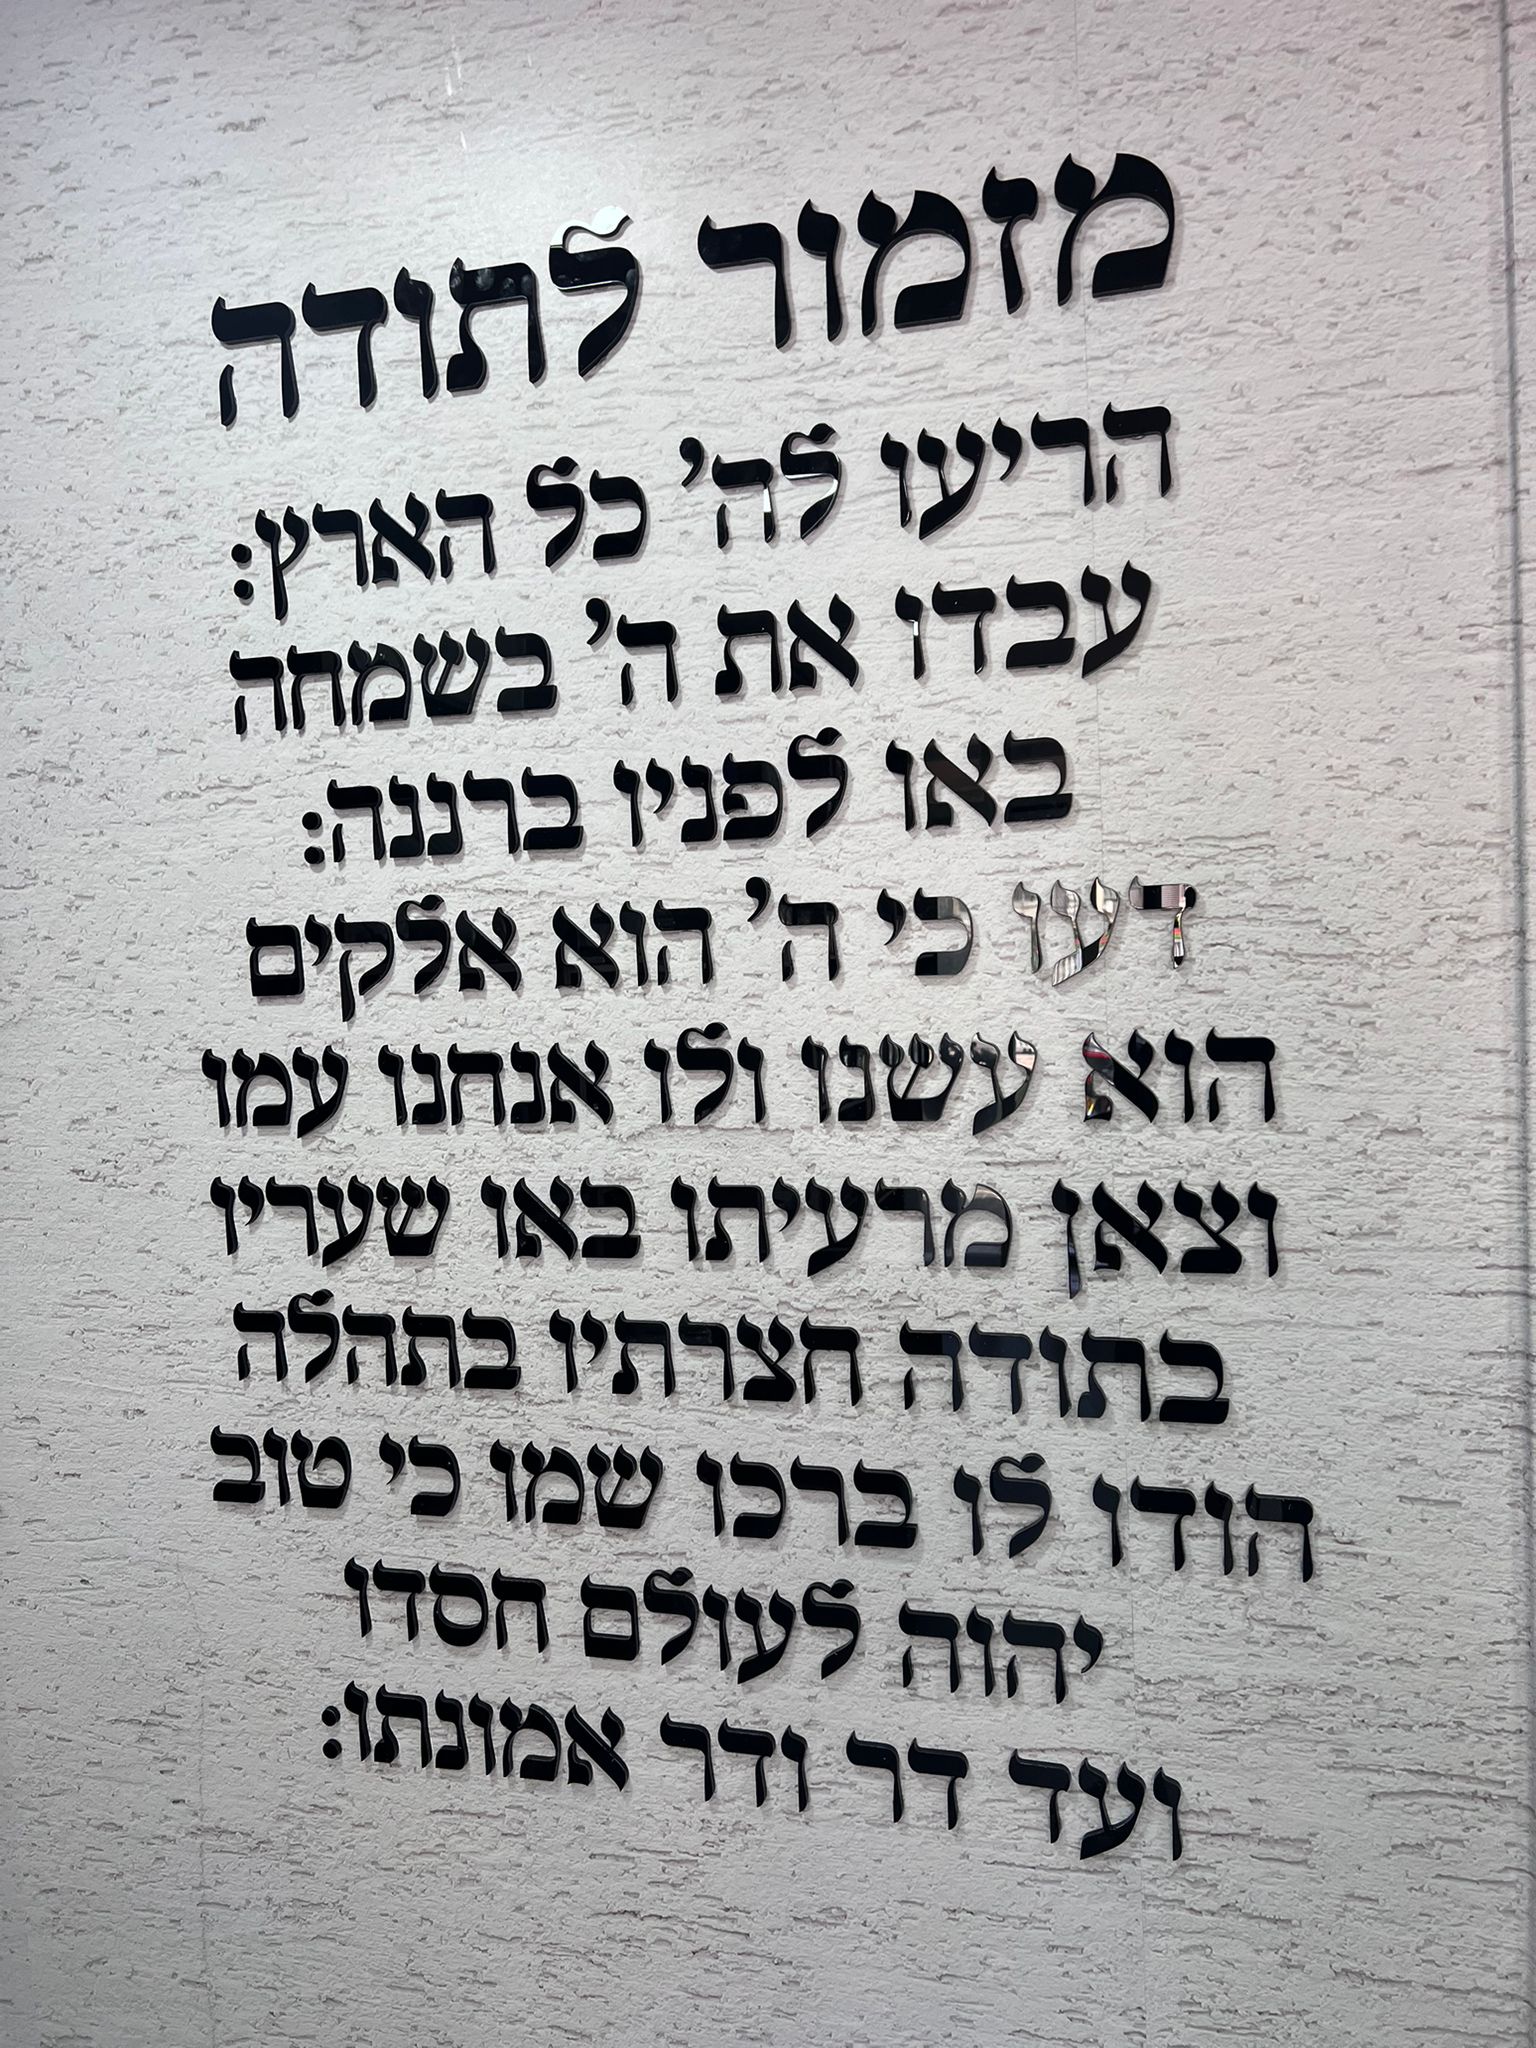 מזמור לתודה
הריעו לה' כל הארץ:
עבדו את ה' בשמחה
באו לפניו ברננה:
דעו כי ה' הוא אלקים
הוא עשנו ולו אנחנו עמו
וצאן מרעיתו באו שעריו
בתודה חצרתיו בתהלה
הודו לו ברכו שמו כי טוב
יהוה לעולם חסדו
ועד דר ודר אמונתו: